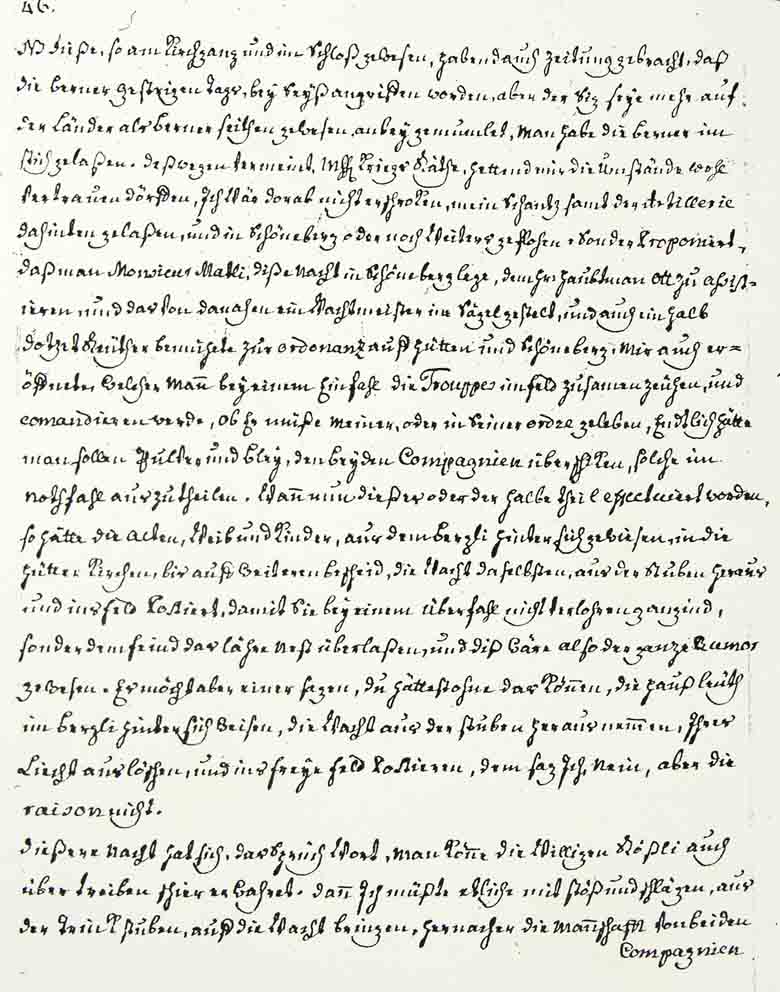 46.
NB dieße, so am Kirchgang und im Schloß gewesen, habend auch Zeitung gebracht, daß
die berner gestrigen tags, bey Seyß angriffen worden, aber der Sig seye mehr auf
der Länder als berner seithen gewesen, anbey gemumlet, Man habe die berner im
stich gelaßen. deßwegen vermeint, Kriegs Räthe, hettend mir die Umstände wohl
vertrauen dörffen, Ich wär dorab nicht erschroken, mein Schantz samt der Artillerie
dahinten gelaßen, und in Schöneberg oder noch Weiters geflohen, Sonder Proponiert,
daß man Monsieur Matli, diße Nacht in Schöneberg lege, dem Hr: Haubtman Ott zu assist-
ieren, und das von danahen ein Wachtmeister ins Sägel gestelt, und auch ein halb
dotzet Reüther bemühete zur ordonantz auff Hütten und Schöneberg, Mir auch er=
öffnete, Welcher Mañ bey einem Einfahl die Trouppes im feld zusamen zeühen, und
comandieren werde, ob Er müße Meiner, oder in Seiner ordre geleben, Endtlich hätte
man sollen Pulver und bley, den beyden Compagnien überschiken, solche im
nothfahl auszutheilen. Wañ nun dießes oder der halbe theil effectuiert worden,
so hätte die alten, Weib und Kinder, aus dem bergli hinter sich gewiesen, in die
Hütter Kirchen, bis auff Weiteren bescheid, die Wacht daselbsten, aus der Stuben heraus
und ins feld Postiert, damit Sie bey einem überfahl nicht verlohren gangind,
sonder dem feind das lähre Nest überlaßen, und diß Wäre also der gantze Rumor
gewesen. Es möcht aber einer sagen, du hättest ohne das Können, die Hauß leüth
im bergli hinter sich Weisen, die Wacht aus der stuben heraus nem̃en, Ihres
Liecht auslöschen, und ins freye feld Postieren, dem sag Ich, Nein, aber die
raison nicht.
dießere Nacht hat sich, das Sprüch Wort, Man Köñe die Willigen Rößli auch
über treiben schier erwahret. dañ Ich müßte etliche mit stöß und schlägen, aus
der Trinkstuben, auff die Wacht bringen, hernacher die Mañschafft von beiden
Compagnien